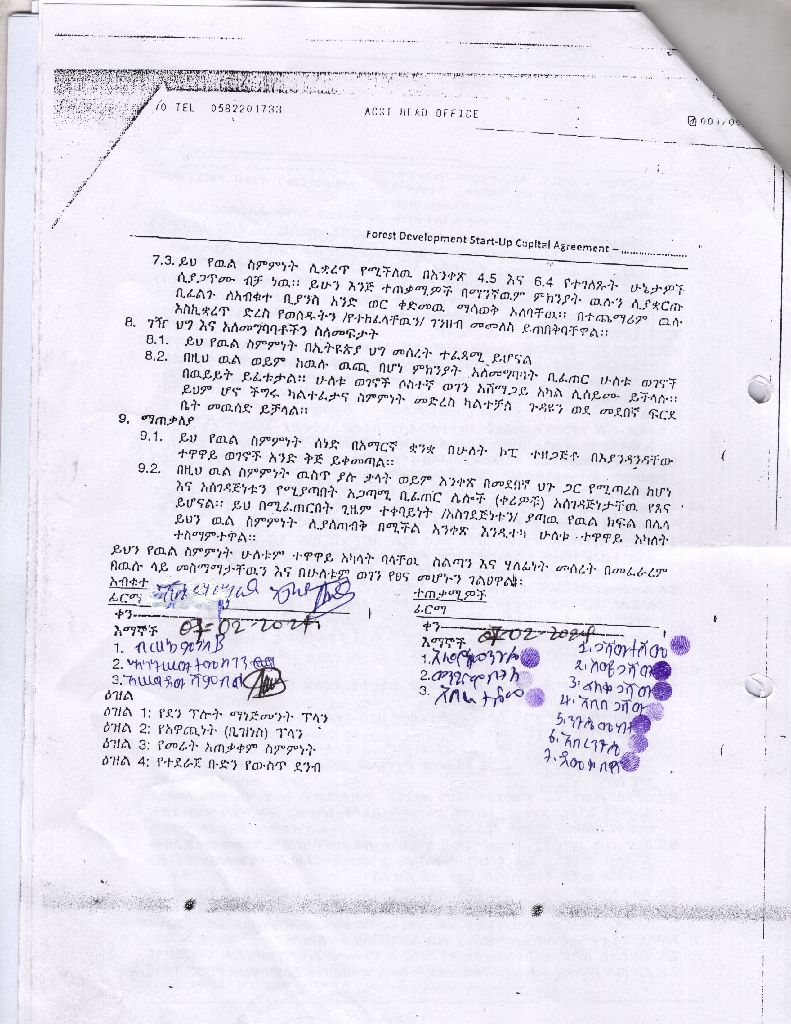 TEL 0582201733 ACSI HEAD OFFICE
Forest Development Start-Up Capital Agreement – ......................
7.3. ይህ የዉል ስምምነት ሊቋረጥ የሚችለዉ በአንቀጽ 4.5 እና 6.4 የተገለጹት ሁኔታዎች
ሲያጋጥሙ ብቻ ነዉ፡፡ ይሁን እንጅ ተጠቃሚዎች በማንኛዉም ምክንያት ዉሉን ሲያቋርጡ
ቢፈልጉ ለአብቁተ ቢያንስ አንድ ወር ቀድመዉ ማሳወቅ አለባቸዉ፡፡ በተጨማሪም ዉሉ
እስኪቋረጥ ድረስ የወሰዱትን /የተከፈላቸዉን/ ገንዘብ መመለስ ይጠበቅባቸዋል፡፡
8. ገዥ ህግ እና አለመግባባቶችን ስለመፍታት
8.1. ይህ የዉል ስምምነት በኢትዩጵያ ህግ መሰረት ተፈጻሚ ይሆናል
8.2. በዚህ ዉል ወይም ከዉሉ ዉጪ በሆነ ምክንያት አለመግባባት ቢፈጠር ሁለቱ ወገኖች
በዉይይት ይፈቱታል፡፡ ሁለቱ ወገኖች ሶስተኛ ወገን አሸማጋይ አካል ሊሰይሙ ይችላሉ፡፡
ይህም ሆኖ ችግሩ ካልተፈታና ስምምነት መድረስ ካልተቻለ ጉዳዩን ወደ መደበኛ ፍርድ
ቤት መዉሰድ ይቻላል፡፡
9. ማጠቃለያ
9.1. ይህ የዉል ስምምነት ሰነድ በአማርኛ ቋንቋ በሁለት ኮፒ ተዘጋጅቶ በእያንዳንዳቸው
ተዋዋይ ወገኖች አንድ ቅጅ ይቀመጣል፡፡
9.2. በዚህ ዉል ስምምነት ዉስጥ ያሉ ቃላት ወይም አንቀጽ በመደበኛ ህጉ ጋር የሚጣረስ ከሆነ
እና አስገዳጅነቱን የሚያጣበት አጋጣሚ ቢፈጠር ሌሎች (ቀሪዎቹ) አስገዳጅነታቸዉ የጸና
ይሆናል፡፡ ይህ በሚፈጠርበት ጊዜም ተቀባይነት /አስገደጅነቱን/ ያጣዉ የዉል ክፍል በሌላ
ይህን ዉል ስምምነት ሊያስጠብቅ በሚችል አንቀጽ እንዲተካ ሁለቱ ተዋዋይ አካላት
ተስማምተዋል፡፡
ይህን የዉል ስምምነት ሁለቱም ተዋዋይ አካላት ባላቸዉ ስልጣን እና ሃላፊነት መሰረት በመፈራረም
በዉሉ ላይ መስማማታቸዉን እና በሁለቱም ወገን የፀና መሆኑን ገልፀዋል፡፡
አብቁተ ተጠቃሚዎች
ፊርማ ፊርማ
ቀን 07-02-2024 ቀን 07-02-2024
እማኞች እማኞች
1. 1.
2. 2.
3. 3.
እዝል
እዝል 1: የደን ፕሎት ማኔጅመንት ፕላን
እዝል 2: የአዋጪነት (ቢዝነስ) ፕላን
እዝል 3: የመሬት አጠቃቀም ስምምነት
እዝል 4: የተደራጀ ቡድን የውስጥ ደንብ